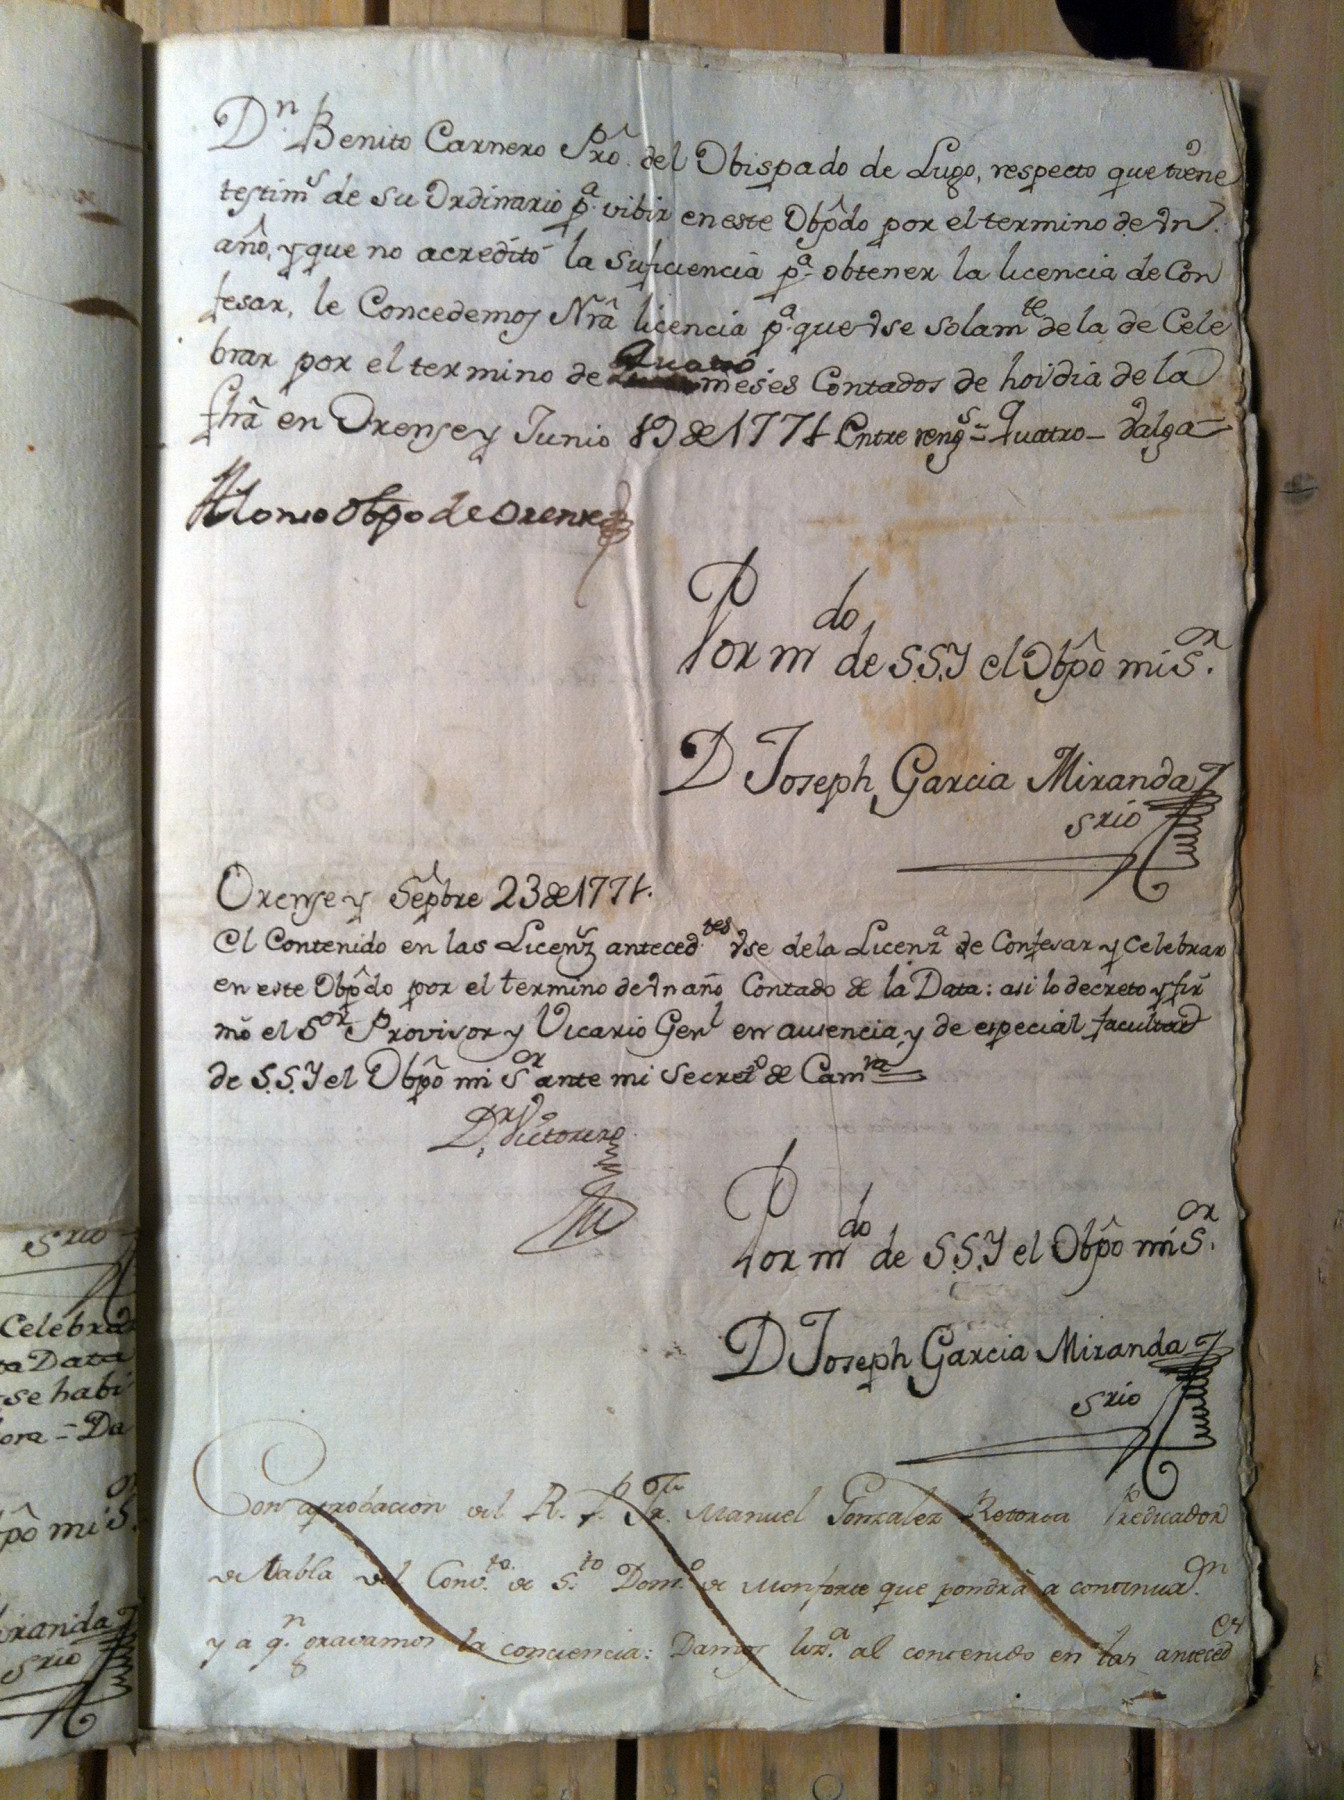 Dn. Benito Carnero Pro. del Obispado de Lugo, respecto que tiene
testims de su Ordinario pa. vibir en este Obpdo por el termino de Un
año, y que no acreditó la suficiencia pa. obtener la licencia de Con
fesar, le Concedemos Nra licencia pa. que Use solamte. de la de Cele
brar por el termino de quatro meses Contados de hoi dia de la
fha en Orense y Junio 19 de 1774 Entre rengs = quatro - Valga =
Alonso Obpo de Orense
Por mdo de S.S.Y el Obpo mi Sor.
D Joseph Garcia Miranda
Srio
Orense y Sepbre 23 de 1774.
El Contenido en las Licenz antecedtes. Use de la Licenza de Confesar y Celebrar
en este Obpdo por el termino de Un año Contado de la Data: asi lo decreto y fir
mó el Sor Provisor y Vicario Genl en ausencia, y de especial facultad
de S.S.Y el Obpo mi Sor ante mi Secreto de Camra
Dr. Victorero
Por mdo de S.S.Y el Obpo mi Sor.
D Joseph Garcia Miranda
Srio
Con aprobacion del R. P. Fr. Manuel Gonzalez Predicador
de tabla del Convto. de Sto. Domo de Monforte que pondrá a continuaon.
y a qn. gravamos la conciencia: Damos liza. al contenido en las anteced
Srio
Celebra
ta Data
se habi
ora = Da
bpo mi S.
iranda
Srio